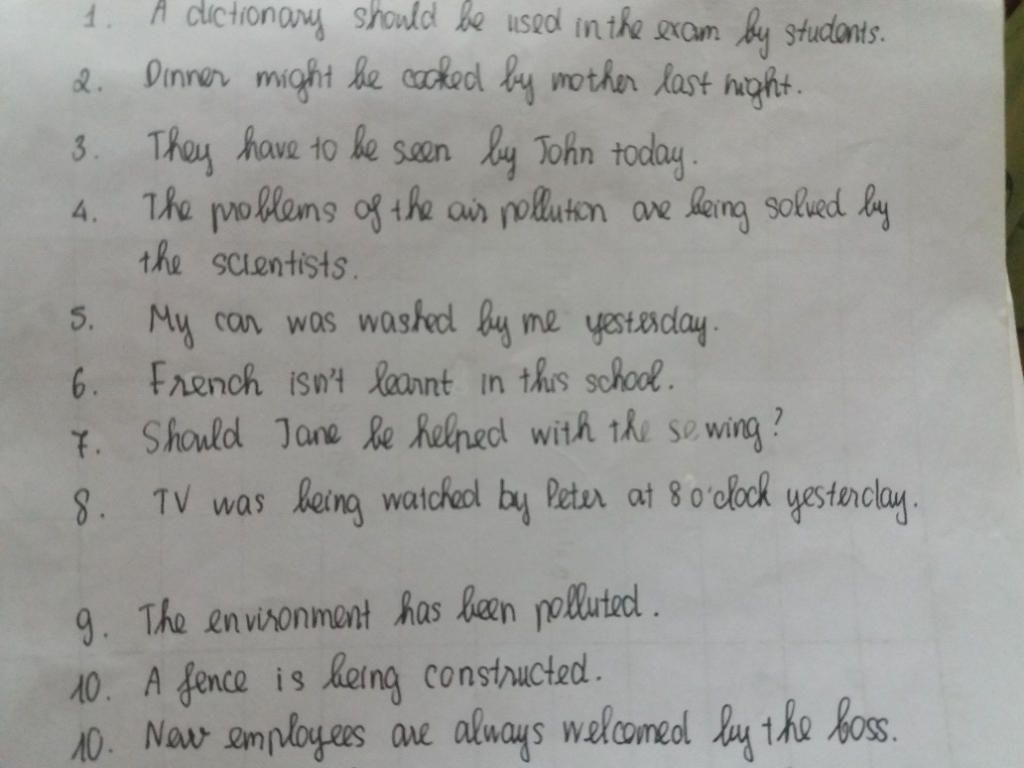 1. A dictionary should be used in the exam by students.
2. Dinner might be cooked by mother last night.
3. They have to be seen by John today.
4. The problems of the air pollution are being solved by
the scientists.
5. My car was washed by me yesterday.
6. French isn't learnt in this school.
7. Should Jane be helped with the sewing?
8. TV was being watched by Peter at 8 o'clock yesterday.
9. The environment has been polluted.
10. A fence is being constructed.
10. New employees are always welcomed by the boss.